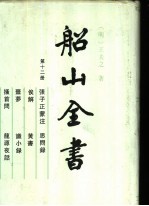 〔明〕王夫之 著
船山全書
第十二册
張子正蒙注 思問錄
俟解 黃書
噩夢 識小錄
搔首問 龍源夜話